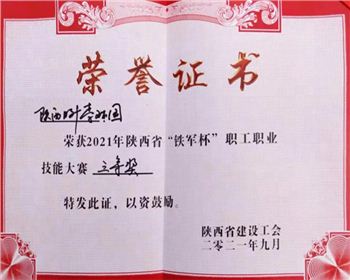 荣誉证书
陕西
荣获2021年陕西省“铁军杯”职工职业
技能大赛 三等奖
特发此证，以资鼓励。
陕西省建设工会
二〇二一年九月